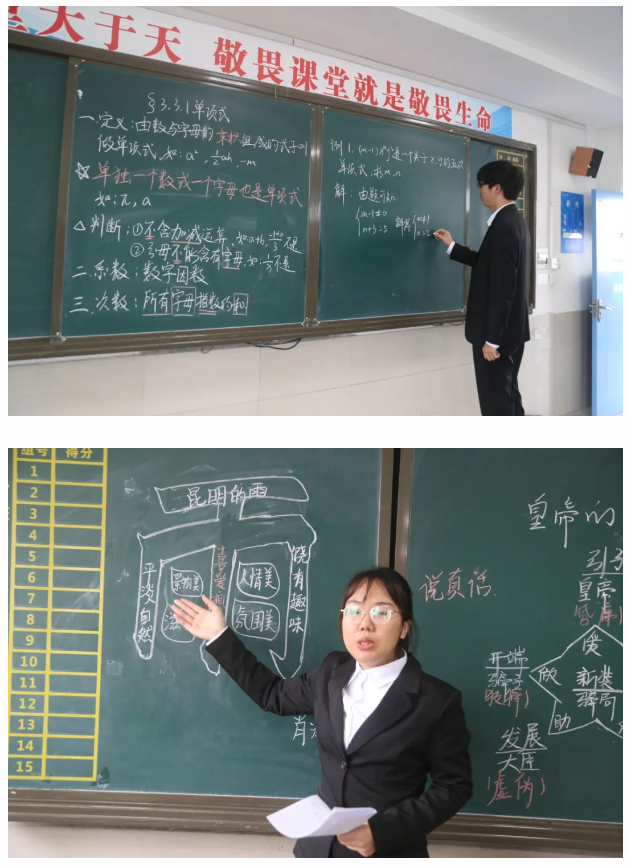 大于天 敬畏课堂就是敬畏生命
§3.3.1单项式
一.定义:由数与字母的乘积组成的式子叫
做单项式,如:a²,
☆单独一个数或一个字母也是单项式
如:π,a
△判断:①不含加减运算,如:a+b,
不是
②字母不能含有字母,如:
不是
二.系数:数字因数
三.次数:所有字母指数的和
例1.
是一个关于x,y的五次
单项式,求m,n
解:由题可知
m-1≠0
n+3=5
解得
m≠1
n=2
组号 得分
1
2
3
4
5
6
7
8
9
10
11
12
13
14
15
昆明的雨
平淡自然
景物美
滋
喜爱
人情美
氛围美
饶有趣味
肖
说真话
皇帝的
引子
皇帝
爱
开端
做
新装
骗局
助
发展
大臣
(虚伪)